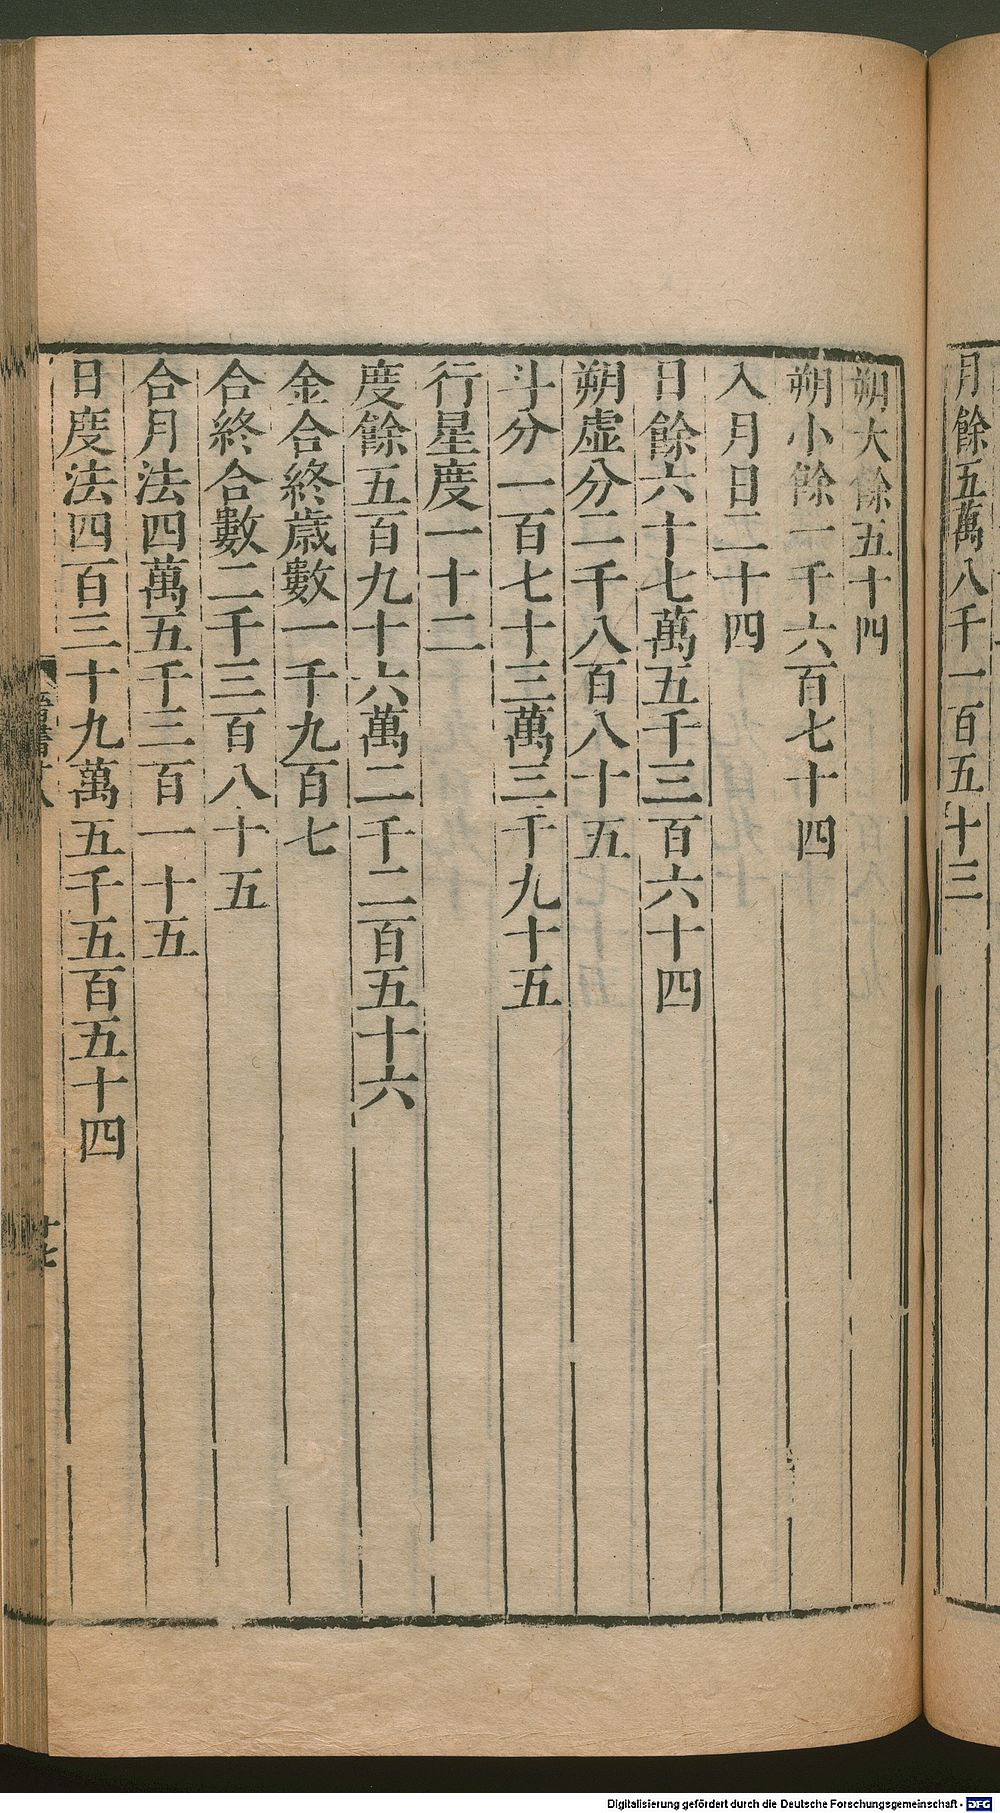 月餘五萬八千一百五十三
朔大餘五十四
朔小餘一千六百七十四
入月日二十四
日餘六十七萬五千三百六十四
朔虛分二千八百八十五
斗分一百七十三萬三千九十五
行星度一十二
度餘五百九十六萬二千二百五十六
金合終歲數一千九百七
合終合數二千三百八十五
合月法四萬五千三百一十五
日度法四百三十九萬五千五百五十四
十七
Digitalisierung gefördert durch die Deutsche Forschungsgemeinschaft - DFG